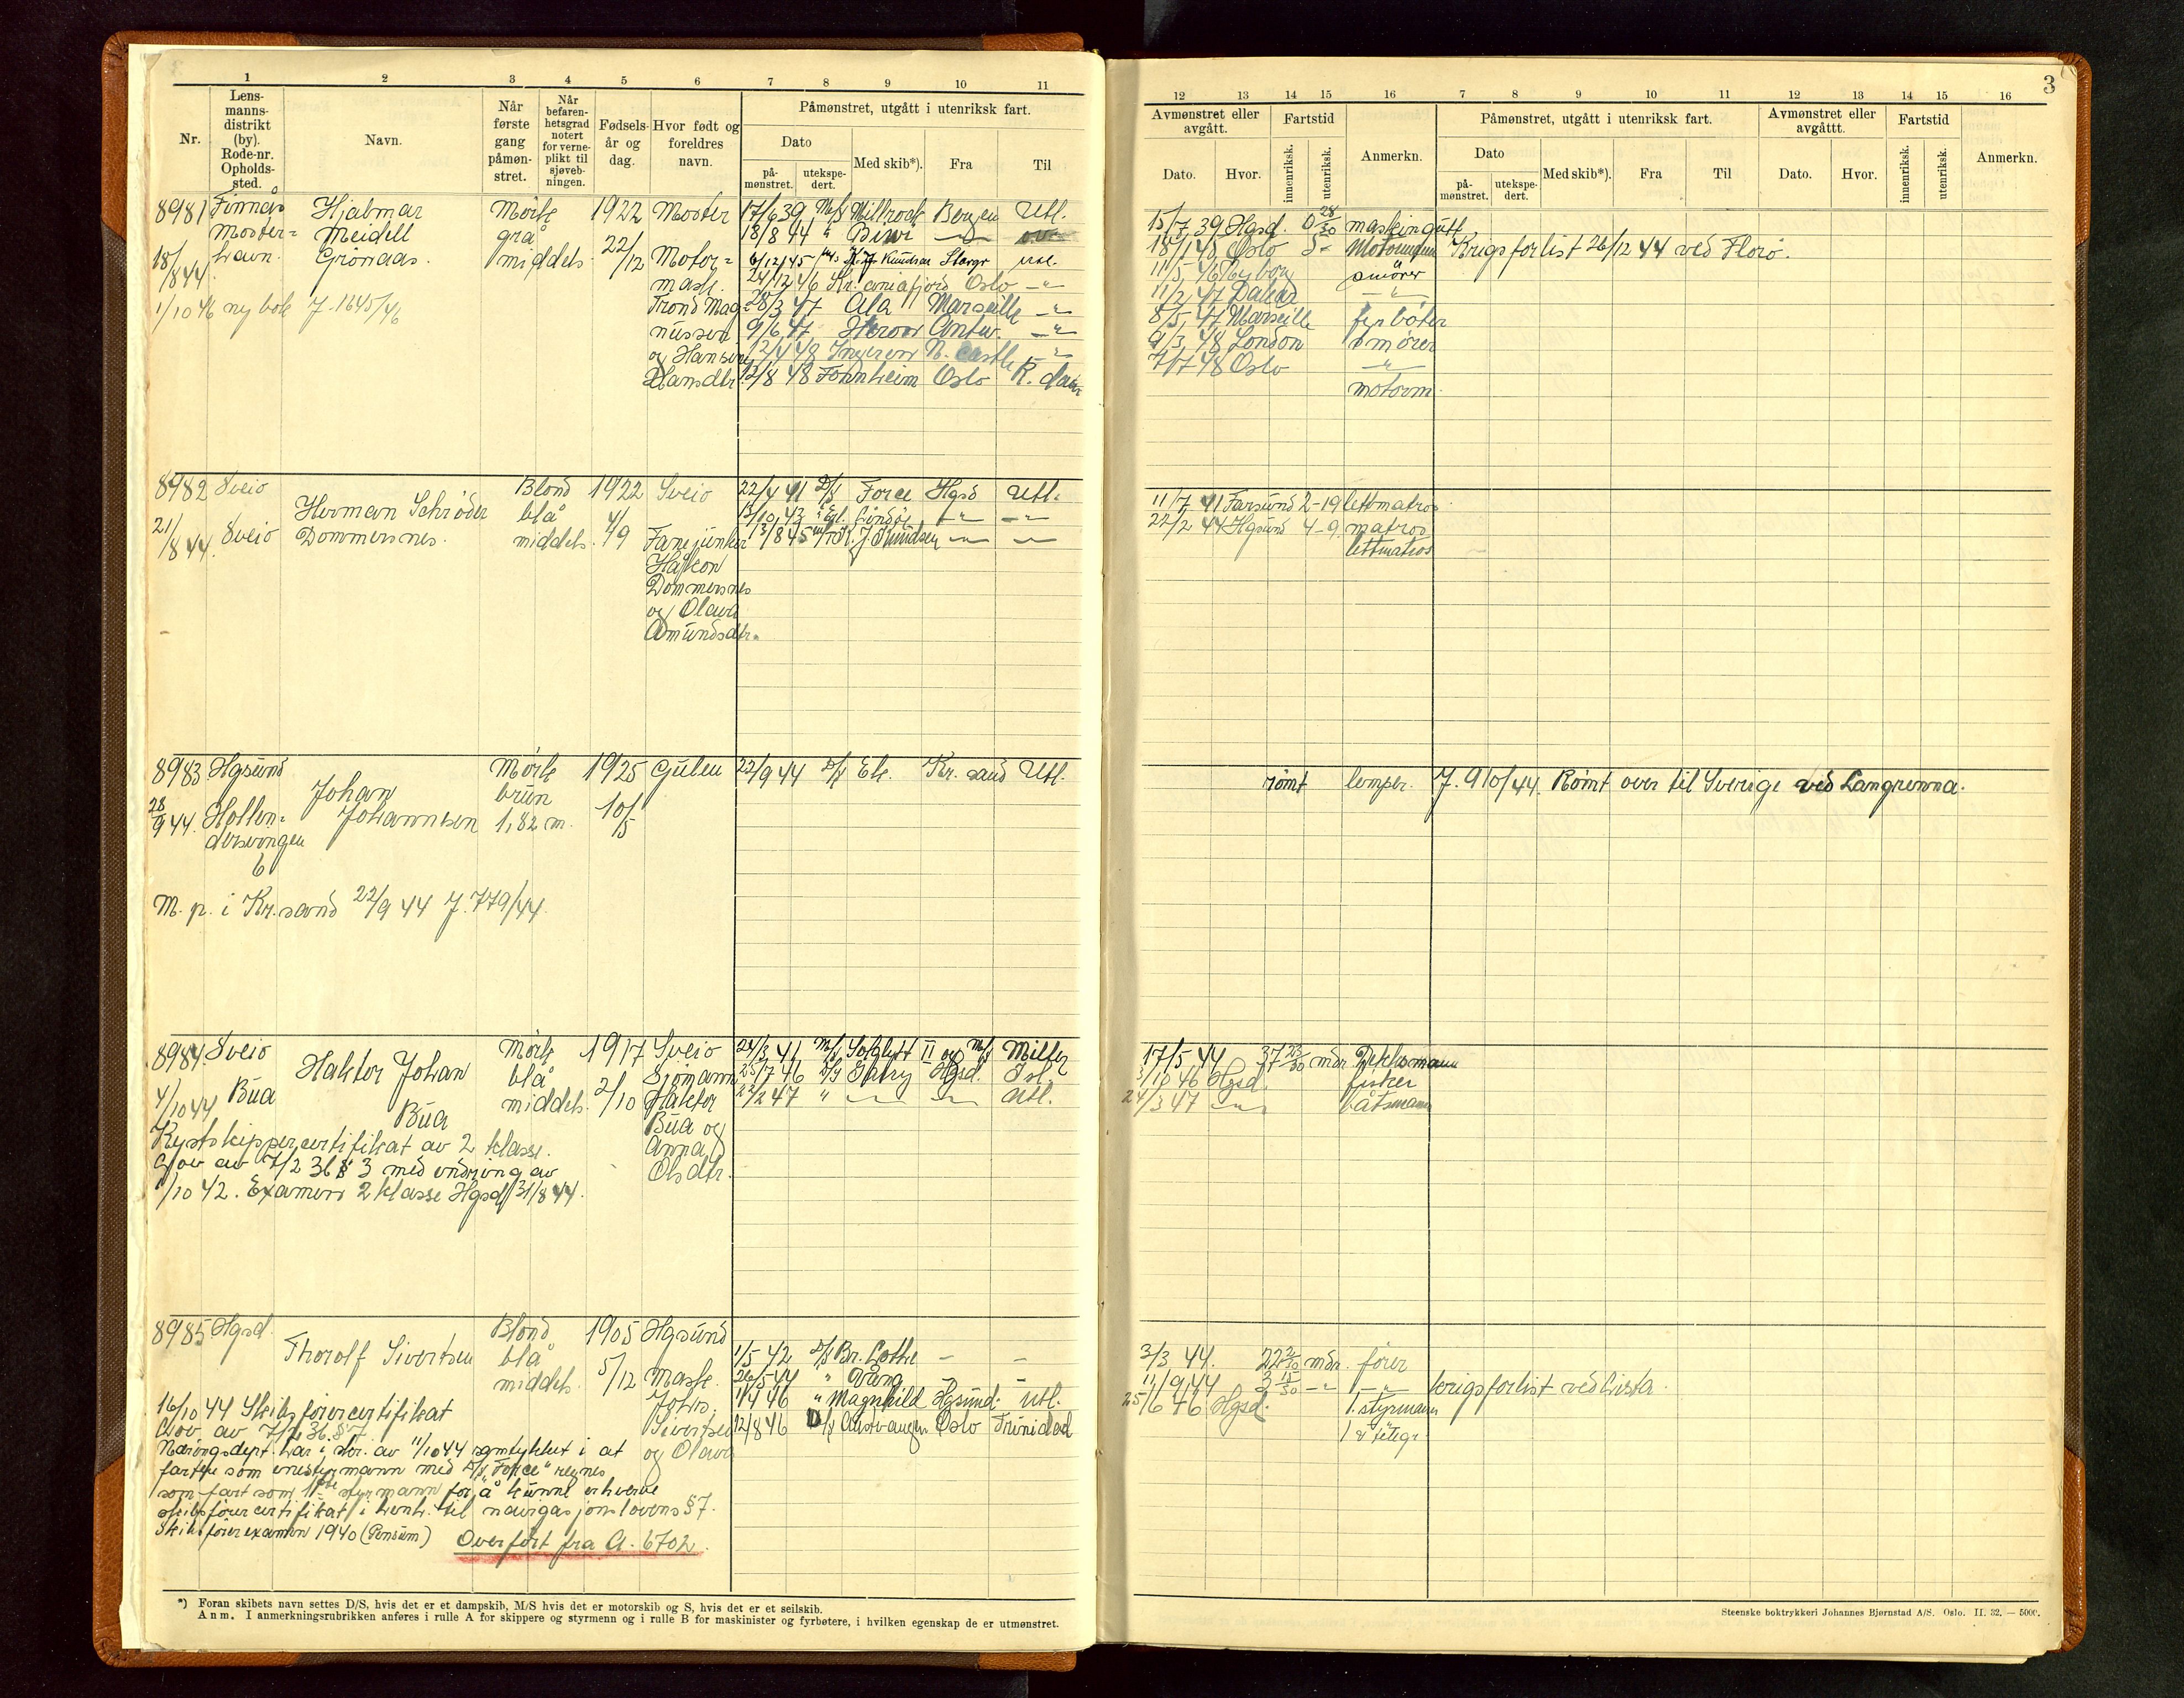 3
1 2 3 4 5 6 7 8 9 10 11
Nr.
Lens-
manns-
distrikt
(by).
Rode-nr.
Opholds-
sted.
Navn.
Når
første
gang
påmøn-
stret.
Når
befaren-
hetsgrad
notert
for verne-
plikt til
sjøveb-
ningen.
Fødsels-
år og
dag.
Hvor født og
foreldres
navn.
Påmønstret, utgått i utenriksk fart.
Dato
på-
mønstret.
utekspe-
dert.
Med skib*).
Fra
Til
12 13 14 15 16 7 8 9 10 11 12 13 14 15 16
Avmønstret eller
avgått.
Dato.
Hvor.
Fartstid
innenriksk.
utenriksk.
Anmerkn.
Påmønstret, utgått i utenriksk fart.
Dato
på-
mønstret.
utekspe-
dert.
Med skib*).
Fra
Til
Avmønstret eller
avgåttt.
Dato.
Hvor.
Fartstid
innenriksk.
utenriksk.
Anmerkn.
8981 Finnås Hjalmar Mörk 1922 Moster 17/6 39 M/S Millrock Bergen Utl.
Moster= Meidell grå 18/8 44 " Biwi
havn. Grönaas. middels. 22/12 Motor= 6/12 45 K. J. Knudsen Utl.
18/8 44. mask. 24/12 46 Kr.aniafjord Oslo -"-
1/10 46 ny bok J. 1645/46 Trond Mag 28/3 47 Ala Marseille -"-
nussen 9/6 47 Heroor Antw. -"-
og Hansine 12/4 48 Ingeren N. Castle -"-
Hansdtr. 12/8 48 Fornheim Oslo R. dam
15/7 39 Hgsd. 0 28/30 maskingutt
18/1 45 Oslo Krigsforlist 26/12 44 ved Florö.
11/5 46 smörer
11/2 47 Dakar -"-
8/5 47 Marseille fyrböter
9/3 48 London smörer
7/7 48 Oslo -"-
motorm.
8982 Sveio Herman Schröder Blond 1922 Sveio 22/4 41 D/S Force Hgsd Utl.
21/8 44. Sveio Dommersnes. blå 4/9 13/10 43 -"- -"-
middels. Fanejunker 13/8 45 K. J. Knudsen -"- -"-
Håkon
Dommersnes
og Olava
Amundsdtr.
11/7 41 Farsund 2-19 lettmatros
22/2 44 Hgsund 4-9. matros
lettmatros
8983 Hgsund Johan Mörk 1925 Gulen 22/9 44 D/S Ek. Kr. sand Utl.
28/9 44. Hollen= Johannsen brun 10/5
dersvingen 1,82 m.
6
M. p. i Kr.sand 22/9 44 J. 779/44.
römt lemper. J. 910/44. Römt over til Sverige ved Langrunna.
8984. Sveio Haktor Johan Mörk 1917 Sveio 24/3 41 M/S Solglytt II og M/S Milter
4/10 44 Bua Bua blå 2/10 Sjömann 25/7 46 Hgsd. Isl.
middels. Haktor 22/2 47 " -"- -"- Utl.
Bua og
Anna
Olsdtr.
Kystskippercertifikat av 2 klasse.
Lov av 7/2 36 § 3 med endring av
1/10 42. Examen 2 klasse Hgsd 31/8 44.
17/5 44 37 23/30 mdr. Dekksmann
1/10 46 Hgsd. fisker
24/3 47 -"- båtsmann
8985 Hgsd. Thorolf Sivertsen Blond 1905 Hgsund 1/5 42 D/S Br. Lothe - -
blå 5/12 Mask. 26/5 44 " Vang - -
middels. Johs. 11/4 46 " Magnhild Hgsund. Utl.
Sivertsen 12/8 46 D/S Austvangen Oslo Trinidad
og Olava
16/10 44 Skibsförercertifikat
Lov av 7/2 36. § 7.
Næringsdept. har i skr. av 11/10 44 samtykket i at
fartstid som enestyrmann med D/S "Force" regnes
som fart som 1ste styrmann for å kunne erhverve
skibsförercertifikat i henh. til navigasjonslovens § 7.
Skibsförerexamen 1940 (Pensum) Overfört fra A. 6702.
3/3 44. mdr. förer
11/9 44 3 15/30 -"- -"- krigsforlist ved Lista.
25/6 46 Hgsd. 1. styrmann
*) Foran skibets navn settes D/S, hvis det er et dampskib, M/S hvis det er motorskib og S, hvis det er et seilskib.
Anm. I anmerkningsrubrikken anføres i rulle A for skippere og styrmenn og i rulle B for maskinister og fyrbøtere, i hvilken egenskap de er utmønstret.
Steenske boktrykkeri Johannes Bjørnstad A/S. Oslo. II. 32. — 5000.